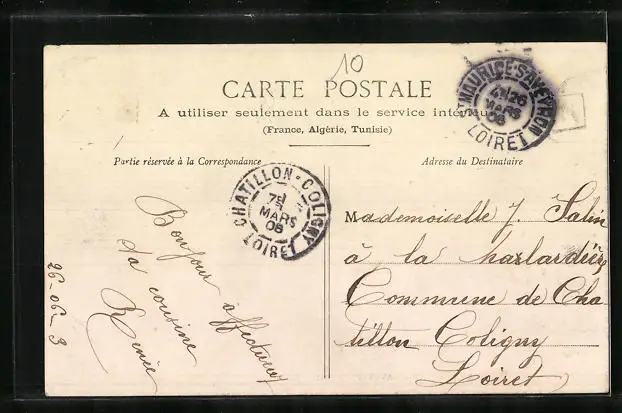 10
CARTE POSTALE
A utiliser seulement dans le service intérieur
(France, Algérie, Tunisie)
Partie réservée à la Correspondance
Adresse du Destinataire
ST MAURICE-S-AVEYRON
26
MARS
06
LOIRET
CHATILLON-COLIGNY
MARS
06
LOIRET
Bonjour affectueux
da cousine
Renée
26-06-3
Mademoiselle J. Salin
à la
Commune de Cha
tillon Coligny
Loiret